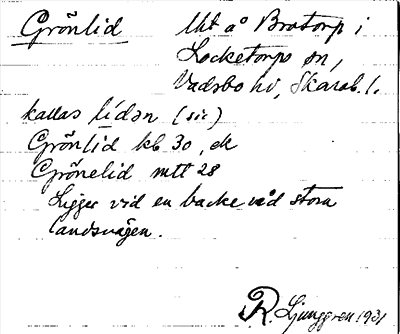 Grönlid
Lht å Brotorp i
Locketorps sn,
Vadsbo hd, Skarab. l.
kallas lídən (sic)
Grönlid kb 30, ek
Grönelid mtt 28
Ligger vid en backe vid stora
landsvägen.
R. Ljunggren 1931